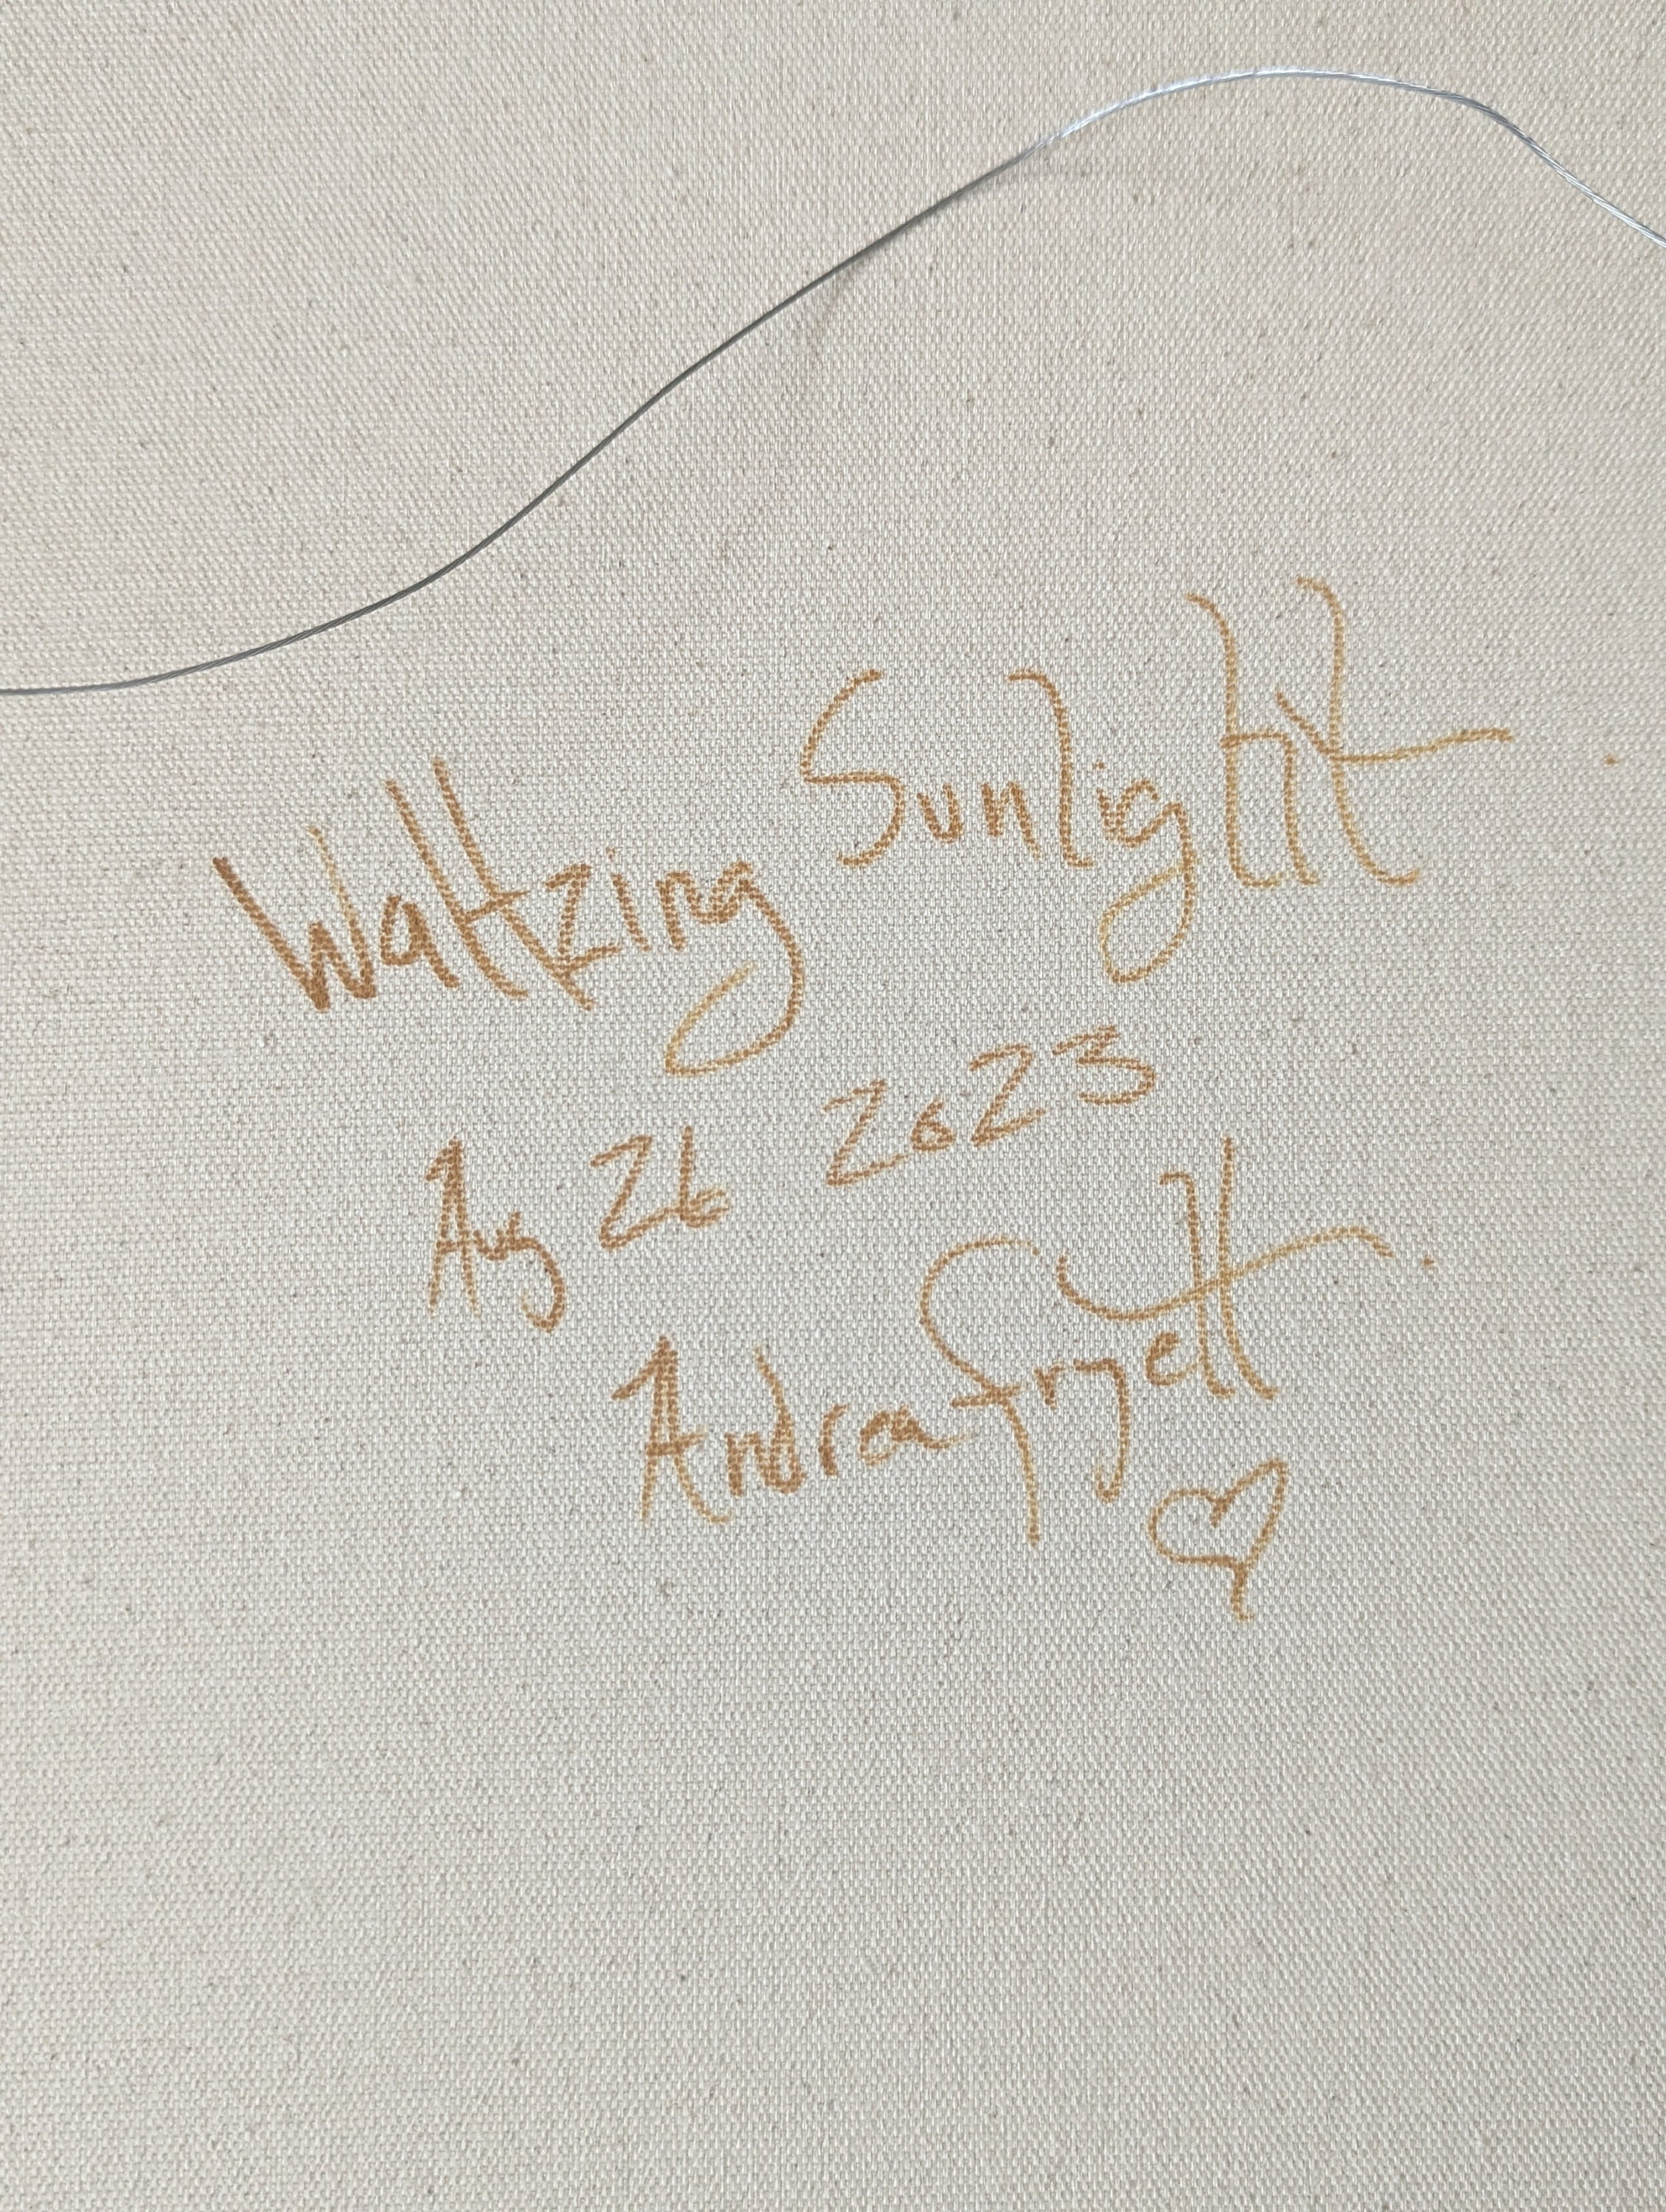 Waltzing Sunlight
Aug 26 2023
Andrea Fryett